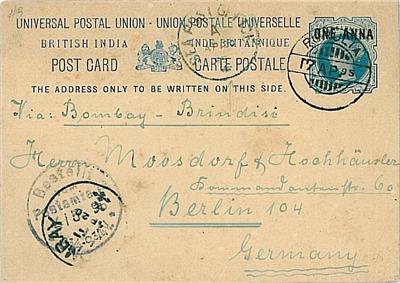 UNIVERSAL POSTAL UNION - UNION POSTALE UNIVERSELLE
BRITISH INDIA INDE BRITANNIQUE
ONE ANNA
POST CARD CARTE POSTALE
THE ADDRESS ONLY TO BE WRITTEN ON THIS SIDE.
Via: Bombay - Brindisi
Herrn Moosdorf & Hochhäusler
Kommandantenstr. 60
Berlin 104
Germany
Bestellt